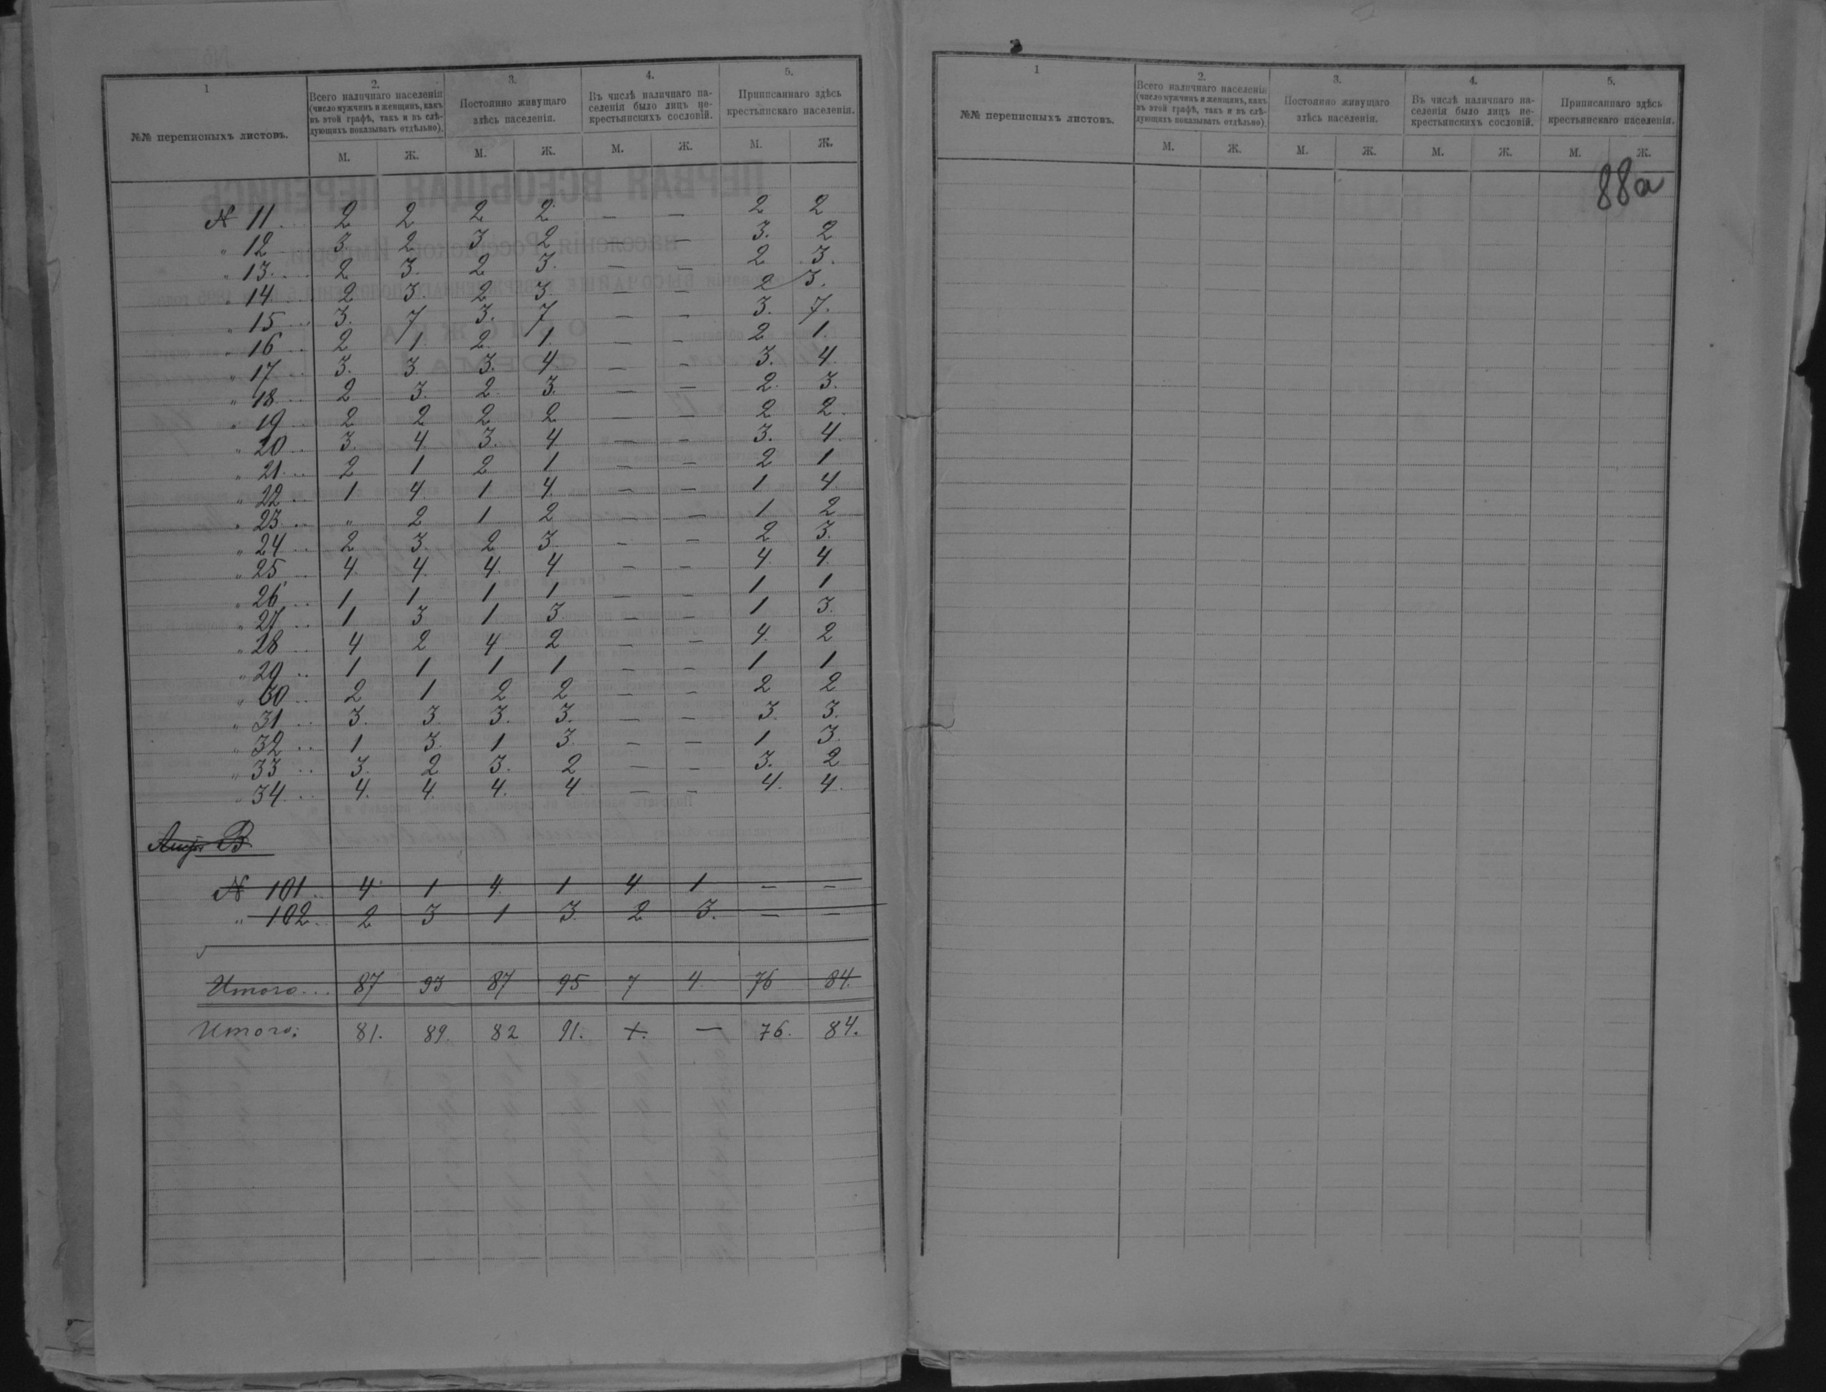 1
2.
3.
4.
5.
№№ переписныхъ листовъ.
Всего наличнаго населенія
(число мужчинъ и женщинъ, какъ
въ этой графѣ, такъ и въ слѣ-
дующихъ показывать отдѣльно).
Постоянно живущаго
здѣсь населенія.
Въ числѣ наличнаго на-
селенія было лицъ не-
крестьянскихъ сословій.
Приписаннаго здѣсь
крестьянскаго населенія.
М. Ж. М. Ж. М. Ж. М. Ж.
№ 11 2 2 2 2 — — 2 2
" 12 3. 2 3 2 — — 3. 2
" 13 2 3. 2 3. — — 2 3.
" 14 2 3. 2 3. — — 2 3.
" 15 3. 7 3. 7 — — 3. 7.
" 16 2 1 2 1. — — 2 1.
" 17 3. 3 3. 4 — — 3. 4.
" 18 2 3. 2 3. — — 2. 3.
" 19 2 2 2 2 — — 2 2.
" 20 3. 4. 3. 4. — — 3. 4.
" 21 2 1 2 1 — — 2 1
" 22 1 4. 1 4. — — 1 4.
" 23 " 2 1 2 — — 1 2
" 24 2 3. 2 3. — — 2 3.
" 25 4. 4. 4. 4 — — 4. 4.
" 26 1 1 1 1 — — 1 1
" 27 1 3 1 3. — — 1 3.
" 28 4 2 4 2 — — 4. 2
" 29 1 1 1 1 — — 1 1
" 30 2 1 2 2 — — 2 2
" 31 3. 3. 3. 3. — — 3. 3.
" 32 1 3. 1 3 — — 1 3.
" 33 3. 2 3. 2 — — 3. 2
" 34 4. 4. 4. 4. — — 4. 4.
В
№ 101 4 1 4 1 4 1 — —
" 102 2 3 1 3 2 3. — —
Итого 87 93 87 95 7 4 76 84.
Итого: 81. 89. 82 91. +. — 76. 84.
1
2.
3.
4.
5.
№№ переписныхъ листовъ.
Всего наличнаго населенія
(число мужчинъ и женщинъ, какъ
въ этой графѣ, такъ и въ слѣ-
дующихъ показывать отдѣльно).
Постоянно живущаго
здѣсь населенія.
Въ числѣ наличнаго на-
селенія было лицъ не-
крестьянскихъ сословій.
Приписаннаго здѣсь
крестьянскаго населенія.
М. Ж. М. Ж. М. Ж. М. Ж.
88а